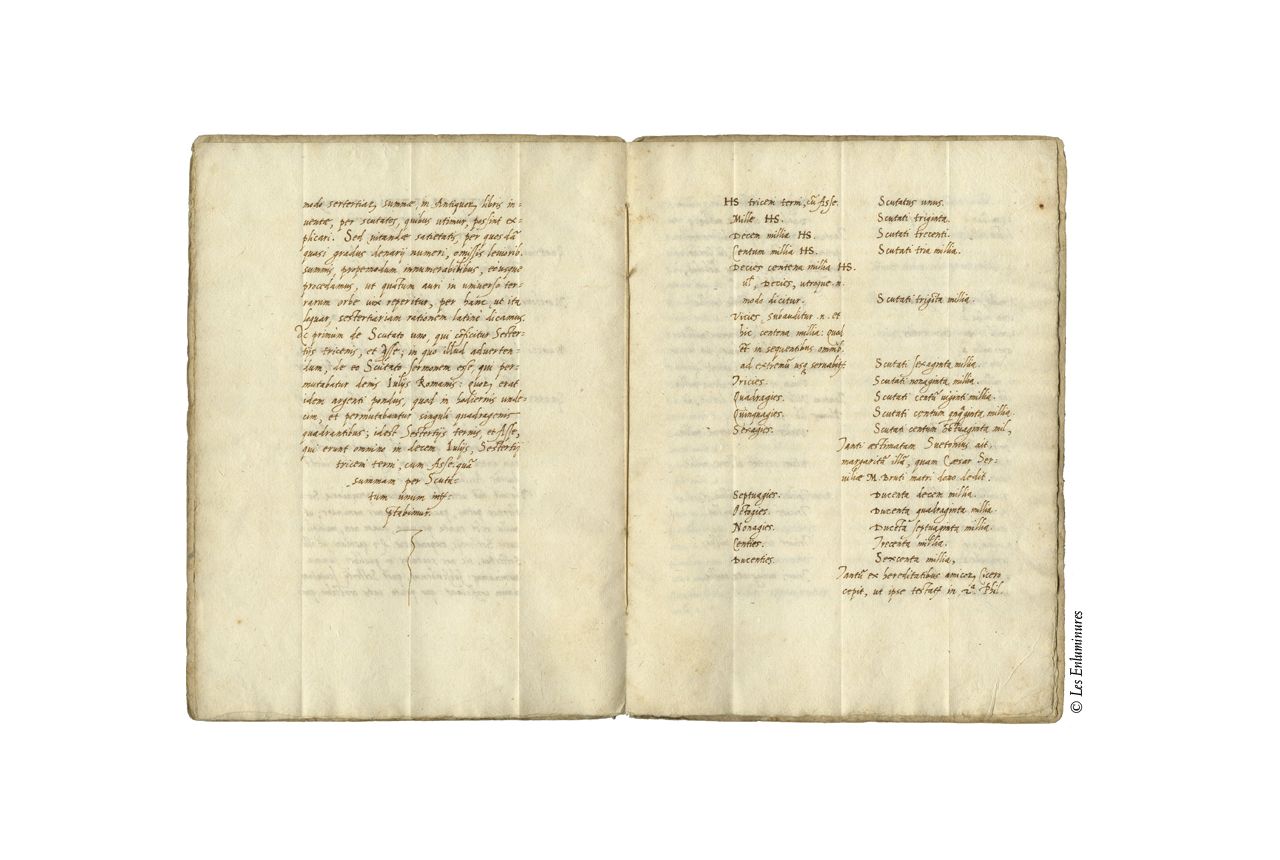 modo sertertiar, summæ, in Antiquor, libris in-
ventæ, per scutatos, quibus utimur, possint ex-
plicari. Sed vitandæ satietatis, per quosdā
quasi gradus denarij numeri, omissis levioribˢ
summis, propemodum innumerabilibus, eousque
procedamus, ut quātum auri in universo ter-
rarum orbe vix reperitur, per hanc ut ita
loquar, sestertiariam rationem latine dicamus.
Ac primum de Scutato uno, qui cōficitur Sester-
tijs tricenis, et Asse; in quo illud adverten-
dum, de eo Scutato sermonem esse, qui per-
mutabatur denis Iulijs Romanis: quor, erat
idem argenti pondus, quod in hodiernis unde-
cim, et permutabantur singuli quadragenis
quadrantibus; idest Sestertijs ternis, et Asse,
qui erunt omnino in decem Iulijs, Sestertij
triceni terni, cum Asse: quā
summam per Scuta-
tum unum inter-
ptabimur.
HS triceni terni, cū Asse. Scutatus unus.
Mille HS. Scutati triginta.
Decem millia HS. Scutati trecenti.
Centum millia HS. Scutati tria millia.
Decies centena millia HS.
ul', Decies, utroque .n.
modo dicitur. Scutati trigīta millia.
Vicies, subauditur .n. et
hic centena millia: quod
et in sequentibus omnibˢ
ad extremū usq servabitʳ: Scutati sexaginta millia.
Tricies. Scutati nonaginta millia.
Quadragies. Scutati centū viginti millia.
Quinquagies. Scutati centum qnquaginta millia.
Sexagies. Scutati centum octuaginta mil,
Tanti æstimatam Suetonius ait
margaritū illā, quam Cæsar Ser-
viliæ M. Bruti matri dono dedit.
Septuagies. Ducenta decem millia.
Octogies. Ducenta quadraginta millia.
Nonagies. Ducēta septuaginta millia
Centies. Trecenta millia.
Ducenties. Sexcenta millia,
Tantū ex hereditatibus amicor, Cicero
cepit, ut ipse testatʳ in 2ª. Phil.
© Les Enluminures